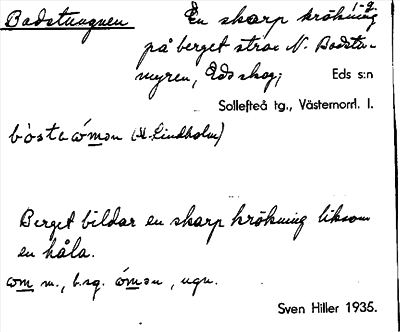 Badstuugnen
En skarp krökning
1-2.
på berget strax N. Badstu-
myren, Eds skog; Eds s:n
Sollefteå tg., Västernorrl. l.
bòste ómən (H. Lindholm)
Berget bildar en skarp krökning liksom
en håla.
om m., b.sg. ómən, ugn.
Sven Hiller 1935.